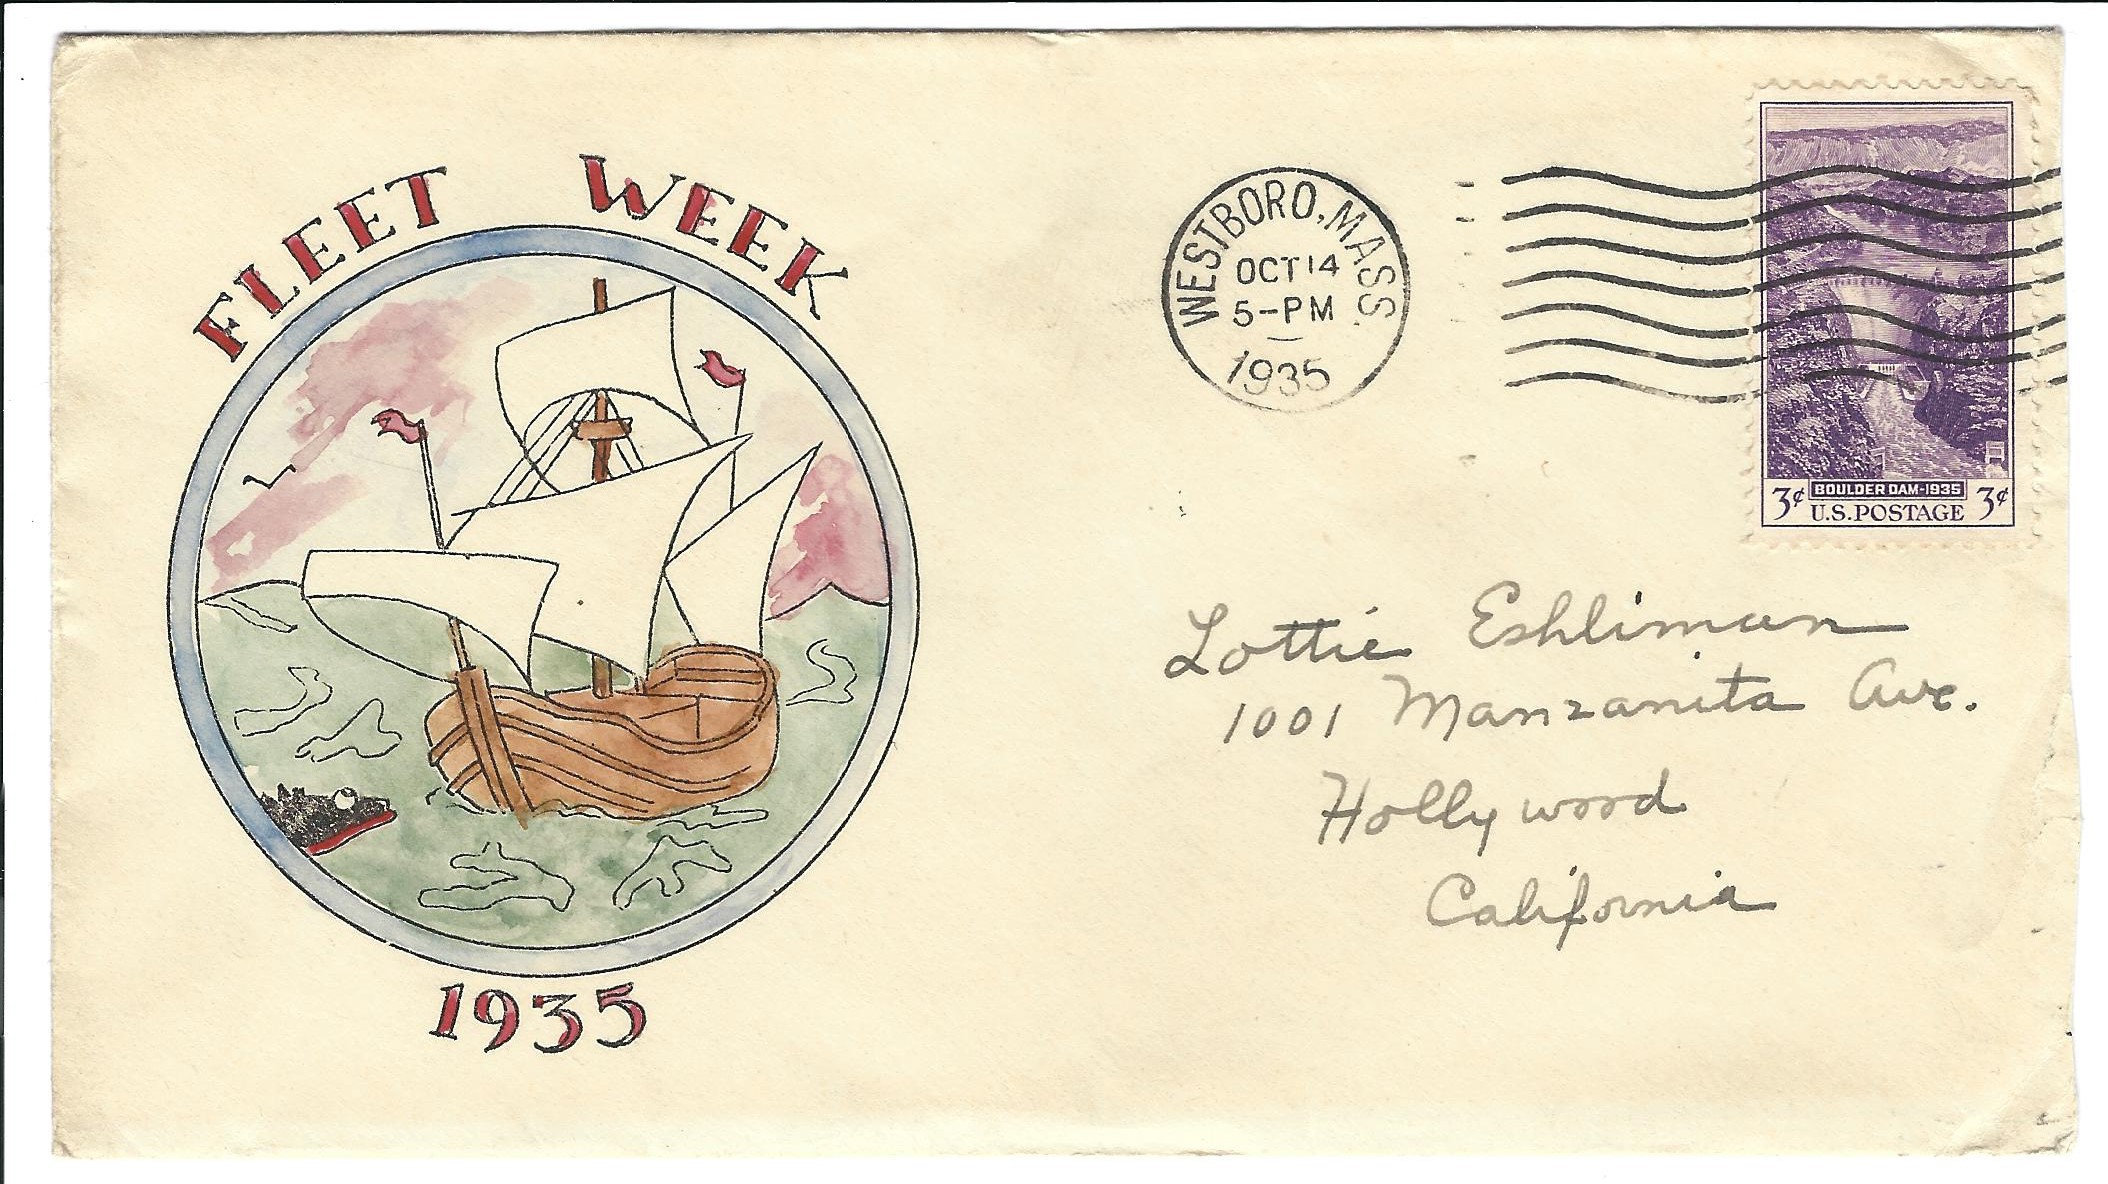 FLEET WEEK
1935
WESTBORO, MASS.
OCT 14
5-PM
1935
3¢ BOULDER DAM-1935 3¢
U.S. POSTAGE
Lottie Eshliman
1001 Manzanita Ave.
Hollywood
California